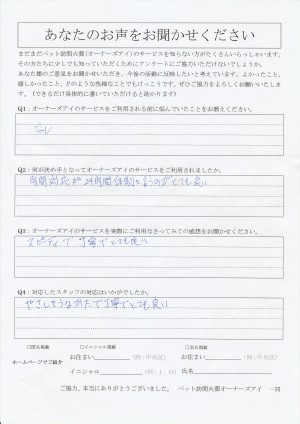 あなたのお声をお聞かせください
まだまだペット訪問火葬(オーナーズアイ)のサービスを知らない方がたくさんいらっしゃいます。
その方たちに少しでも知っていただくためにアンケートにご協力いただけないでしょうか。
あなた様のご意見をお聞かせいただき、今後の活動に反映したいと考えています。よかったこと、
嬉しかったこと、どのような些細なことでもけっこうです。ぜひご協力をよろしくお願いいたしま
す。(できるだけ具体的に書いていただけると助かります)
Q1:オーナーズアイのサービスをご利用される前に悩んでいたことをお教えください。
Q2:何が決め手となってオーナーズアイのサービスをご利用されましたか。
時間対応が24時間体制と言うのがとても良い
Q3:オーナーズアイのサービスを実際にご利用なさってみての感想をお聞かせください。
スピーディで丁寧でとても良い
Q4:対応したスタッフの対応はいかがでしたか。
やさしそうなかたで丁寧でとても良い
□匿名掲載 □イニシャル掲載 □実名掲載
ホームページでご紹介
お住まい (例:中央区) お住まい (例:中央区)
イニシャル (例:J.H) 氏名
ご協力、本当にありがとうございました。 ペット訪問火葬オーナーズアイ 一同